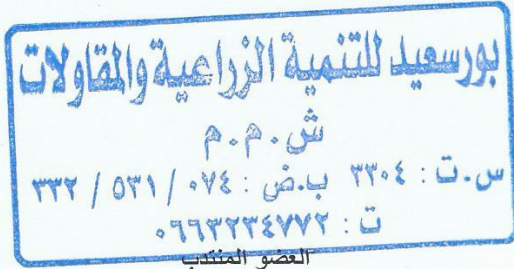 بورسعيد للتنمية الزراعية والمقاولات
ش.م.م
س.ت : ٣٣٠٤ ب.ض : ٠٧٤ / ٥٣١ / ٣٣٢
ت : ٠٦٦٣٢٣٤٧٧٢
العضو المنتدب